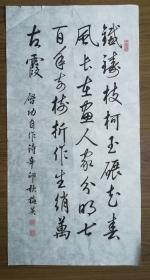 铁铸枝柯玉碾花春
风长在画人家分明七
百年前树折作生绡万
古霞 启功自作诗辛卯秋梅英